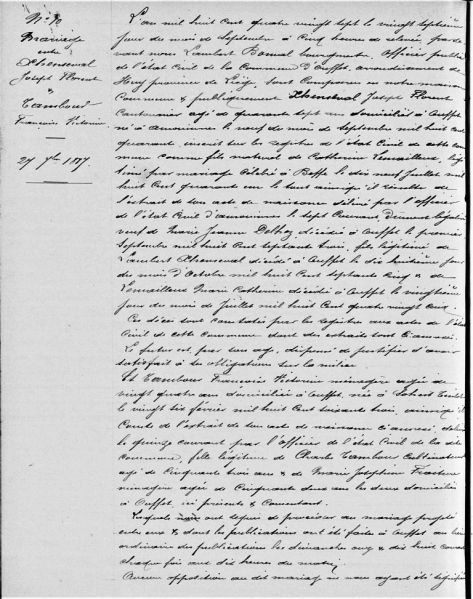 N° 12
Mariage
entre
Xhenseval
Joseph Florent
&
Tambour
Françoise Victorine
27 7bre 1887
L'an mil huit cent quatre vingt sept le vingt septième
jour du mois de Septembre à Cinq heures de relevée, par de-
vant nous Lambert Bomal bourgmestre, Officier public
de l'état Civil de la Commune d'Ouffet, arrondissement de
Huy province de Liège, sont Comparus en notre maison
Commune & publiquement Xhenseval Joseph Florent
Cantonnier agé de quarante sept ans domicilié à Ouffet
né à le neuf du mois de Septembre mil huit cent
quarante, inscrit sur les registres de l'état Civil de cette com-
mune comme fils naturel de Catherine Lemailleux, légi-
timé par mariage célébré à le dix neuf Juillet mil
huit Cent quarante un le tout ainsi qu'il résulte de
l'extrait de son acte de naissance délivré par l'officier
de l'état Civil d' le sept Courant, demeuré
veuf de Marie Jeanne décédée à Ouffet le premier
Septembre mil huit Cent septante trois, fils légitime de
Lambert Xhenseval décédé à Ouffet le dix huitième jour
du mois d'Octobre mil huit Cent septante cinq & de
Lemailleux Marie Catherine décédée à Ouffet le vingtième
jour du mois de Juillet mil huit Cent quatre vingt cinq
Ces décès sont constatés par les registres aux actes de l'état
Civil de cette Commune, dont des extraits sont Ci annexés.
Le futur est, par son age, dispensé de justifier d'avoir
satisfait à ses obligations sur la milice
Et Tambour Françoise Victorine ménagère agée de
vingt quatre ans domiciliée à Ouffet, née à
le vingt six février mil huit Cent soixante trois, ainsi qu'il
Conste de l'extrait de son acte de naissance Ci annexé, délivré
le quinze courant par l'officier de l'état Civil de la dite
commune, fille légitime de Charles Tambour Cultivateur
agé de Cinquante trois ans & de Marie Joséphine
ménagère agée de Cinquante deux ans les deux domiciliés
à Ouffet, ici présents & Consentant.
Lesquels nous ont requis de procéder au mariage projeté
entre eux & dont les publications ont été faites à Ouffet au lieu
ordinaire des publications les dimanches onze & dix huit courant
chaque fois aux dix heures du matin
Aucune opposition au dit mariage ne nous ayant été signifiée